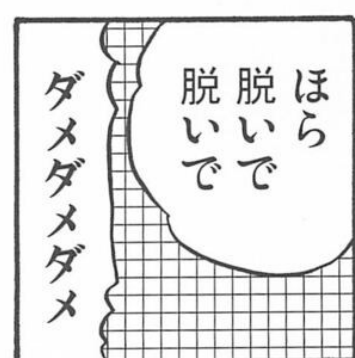 ほら
脱いで
脱いで
ダメダメダメ